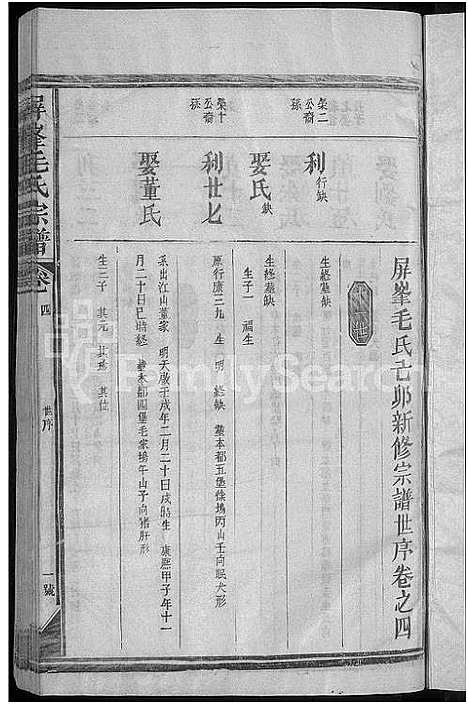 屏峯毛氏己卯新修宗譜世序卷之四
榮二
公裔
孫
利 行缺
生終塟缺
娶氏 缺
生終塟缺
生子一 福生
榮十
公裔
孫
利廿七
原行廉三九 生 明 終缺 塟本都五堡徐塢丙山壬向眠犬形
娶董氏
系出江山董家 明天啟壬戌年二月二十日戌時生 康熙甲子年十一
月二十日巳時終 塟本都四堡毛家塢午山子向猪肝形
生三子 其元 其珍 其位
屏峯毛氏宗譜
卷 四
世序
一號
FamilySearch